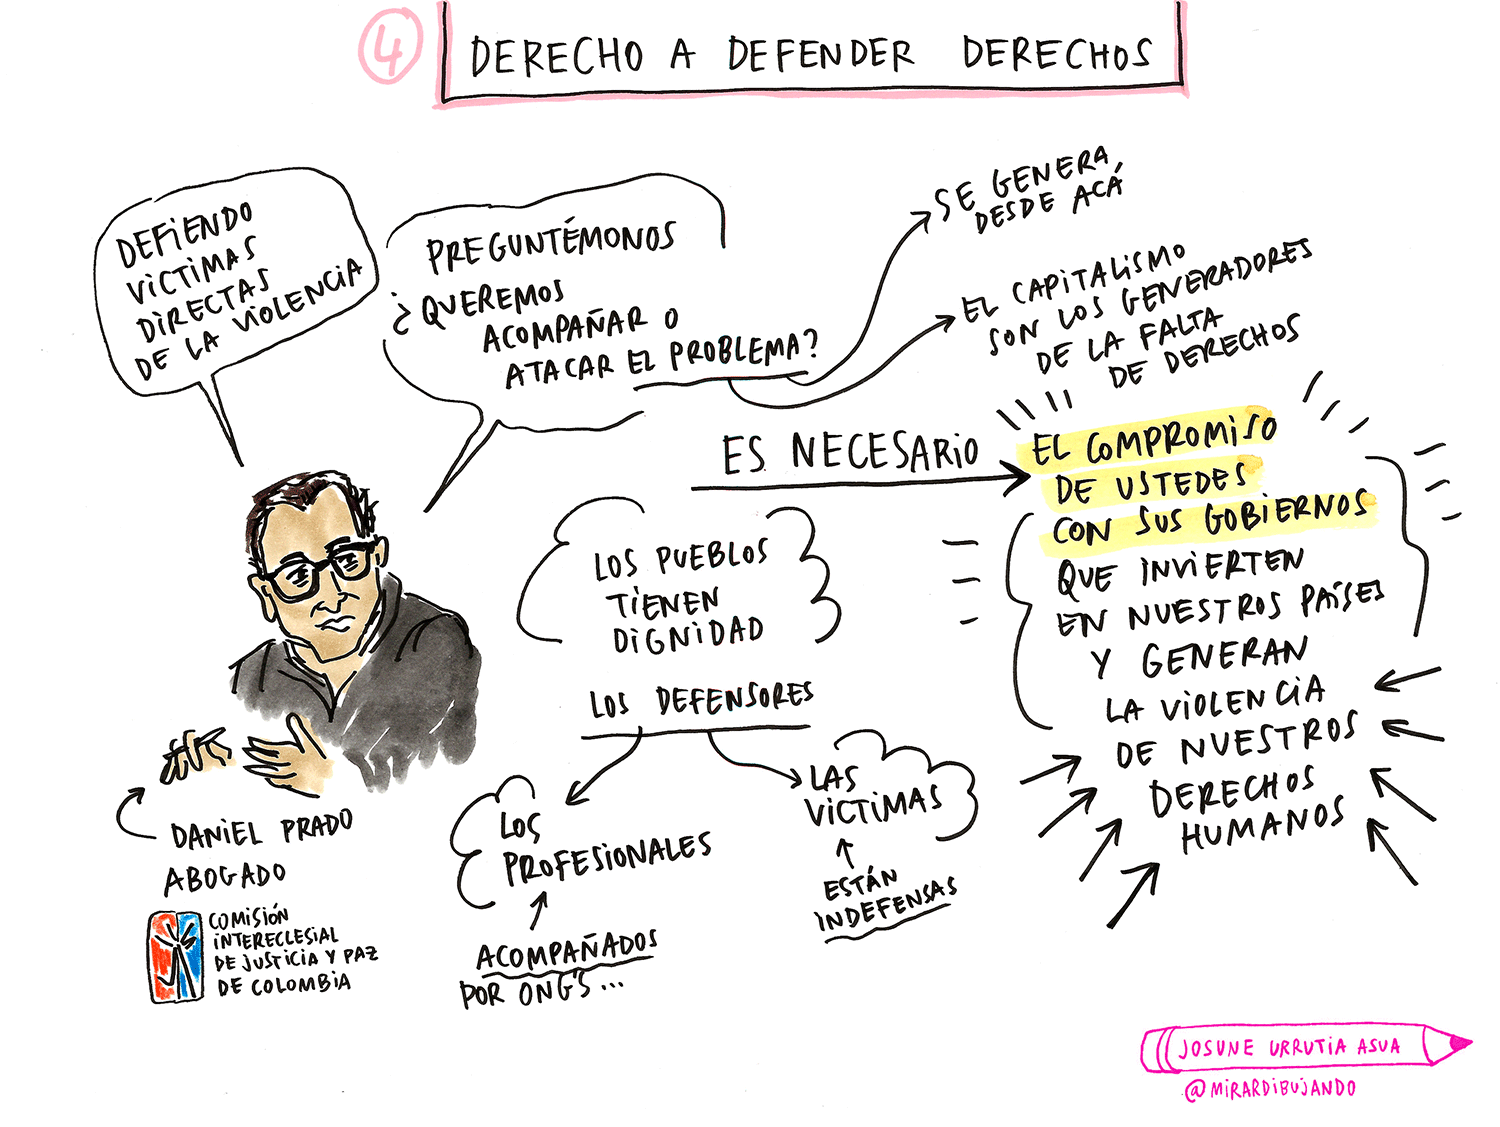 4
DERECHO A DEFENDER DERECHOS
DEFIENDO
VICTIMAS
DIRECTAS
DE LA VIOLENCIA
PREGUNTÉMONOS
¿QUEREMOS
ACOMPAÑAR O
ATACAR EL PROBLEMA?
SE GENERA
DESDE ACÁ
EL CAPITALISMO
SON LOS GENERADORES
DE LA FALTA
DE DERECHOS
ES NECESARIO
EL COMPROMISO
DE USTEDES
CON SUS GOBIERNOS
QUE INVIERTEN
EN NUESTROS PAÍSES
Y GENERAN
LA VIOLENCIA
DE NUESTROS
DERECHOS
HUMANOS
LOS PUEBLOS
TIENEN
DIGNIDAD
LOS DEFENSORES
LOS
PROFESIONALES
ACOMPAÑADOS
POR ONG'S...
LAS
VICTIMAS
ESTÁN
INDEFENSAS
DANIEL PRADO
ABOGADO
COMISIÓN
INTERECLESIAL
DE JUSTICIA Y PAZ
DE COLOMBIA
JOSUNE URRUTIA ASUA
@MIRARDIBUJANDO